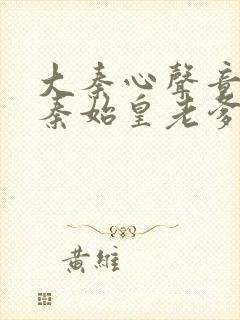 大秦心聲音
秦始皇老爹
黃維